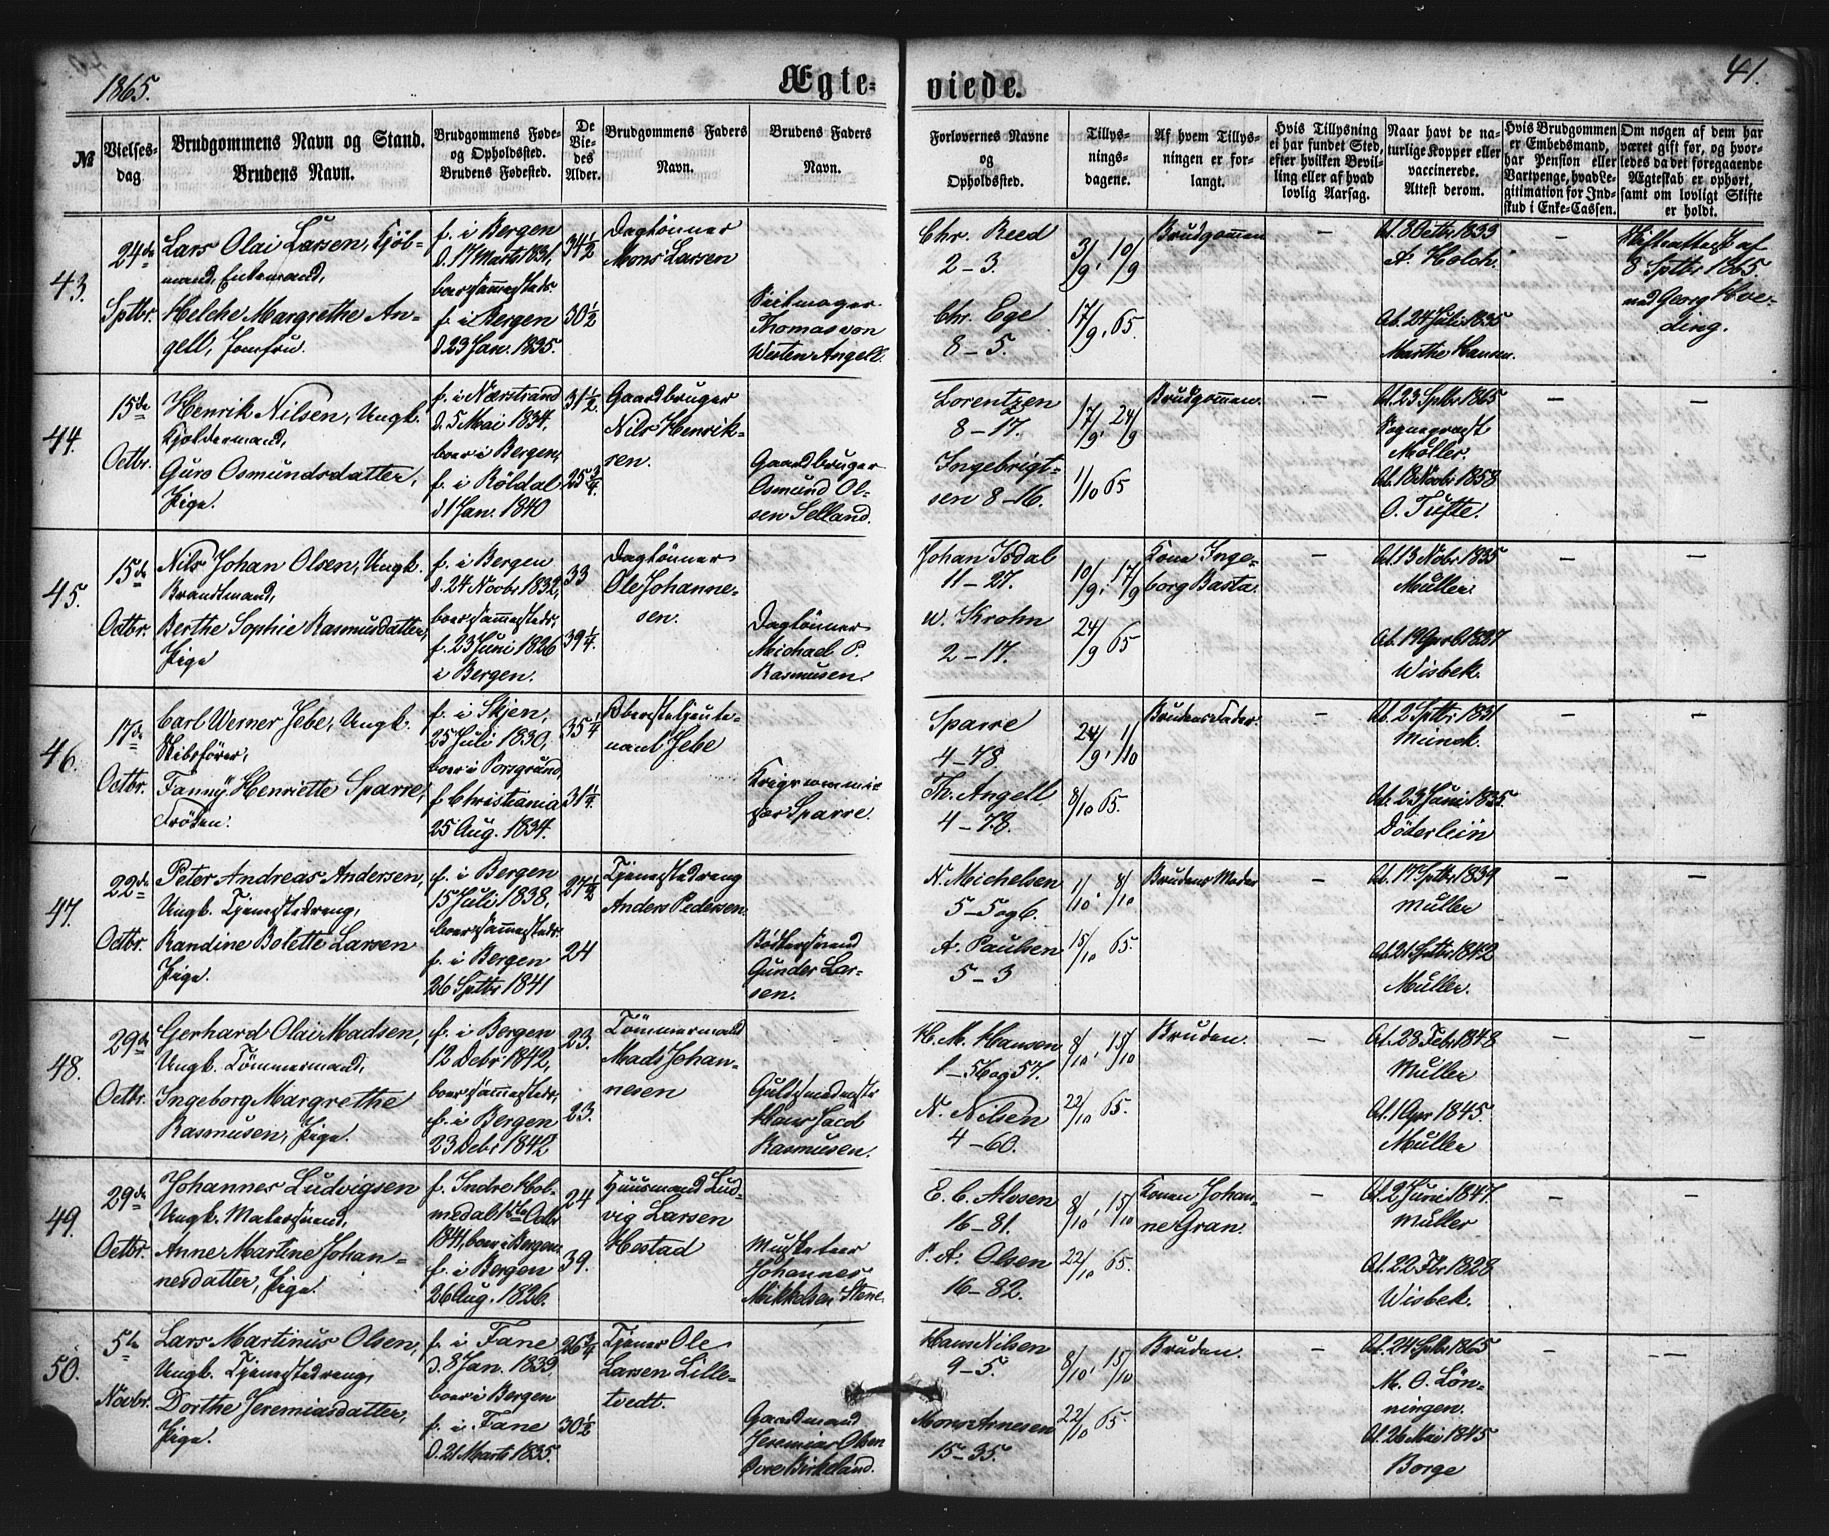 1865.
Ægte-
viede.
41.
№
Vielses-
dag
Brudgommens Navn og Stand.
Brudens Navn.
Brudgommens Føde-
og Opholdssted.
Brudens Fødested.
De
Vie-
des
Alder.
Brudgommens Faders
Navn.
Brudens Faders
Navn.
Forlovernes Navne
og
Opholdssted.
Tillys-
nings-
dagene.
Af hvem Tillys-
ningen er for-
langt.
Hvis Tillysning
ei har fundet Sted,
efter hvilken Bevil-
ling eller af hvad
lovlig Aarsag.
Naar havt de na-
turlige Kopper eller
vaccinerede.
Attest derom.
Hvis Brudgommen
er Embedsmand,
har Pension eller
Vartpenge, hvad Le-
gitimation for Ind-
skud i Enke-Cassen.
Om nogen af dem har
været gift før, og hvor-
ledes da det foregaaende
Ægteskab er ophørt,
samt om lovligt Skifte
er holdt.
43.
24de
Sptbr.
Lars Olai Larsen, Kjöb-
mand, Enkemand,
Helche Margrethe An-
gell, Jomfru.
f. i Bergen
d. 17 Marts 1831,
boer sammesteds.
f. i Bergen
d. 23 Jan. 1835.
34 1/2
30 1/2
Daglönner
Mons Larsen
Seilmager
Thomas von
Westen Angell.
Chr. Reed
2-3.
Chr. Ege
8-5.
3/9, 10/9
17/9, 65.
Brudgommen
–
At. 8 Octbr. 1833
A. Holch.
At. 24 Juli 1835
Marthe Hansen.
–
Skifteattest af
8 Sptbr. 1865.
ved Georg Hve-
ding.
44.
15de
Octbr.
Henrik Nilsen, Ungk.
Kjeldermand,
Guro Osmundsdatter,
Pige.
f. i Nærstrand
d. 5 Mai 1834,
boer i Bergen,
f. i Röldal
d 1 Jan. 1840
31 1/2.
25 3/4.
Gaardbruger
Nils Henrik-
sen.
Gaardbruger
Osmund Ol-
sen Selland.
Lorentzen
8-17.
Ingebrigt-
sen 8-16.
17/9, 24/9
1/10 65
Brudgommen.
–
At. 23 Sptbr 1865
Sognepræst
Möller.
At. 18 Novbr 1858
O. Tufte.
–
–
45.
15de
Octbr.
Nils Johan Olsen, Ungk.
Brandtmand,
Berthe Sophie Rasmusdatter,
Pige
f. i Bergen
d. 24 Novbr 1832,
boer sammesteds,
f. 23 Juni 1826
i Bergen.
33
39 1/4.
Daglönner
Ole Johanne-
sen.
Daglönner
Michael P.
Rasmusen.
Johan Isdal
11-27.
W. Krohn
2-17.
10/9, 17/9
24/9 65
Kone Inge-
borg Basta.
–
At. 13 Nobr 1835
Müller.
At. 19 April 1837
Wisbek.
–
–
46.
17de
Octbr.
Carl Werner Jebe, Ungk.
Skibsförer,
Fanny Henriette Sparre,
Fröken.
f. i Skjen,
25 Juli 1830,
boer i Porsgrund,
f. Christiania
25 Aug. 1834.
35 1/4
31 1/4.
Oberstelieute-
nant Jebe
Krigscommis-
sær Sparre.
Sparre
4-78.
Th. Angell
4-78.
24/9, 1/10
8/10 65.
Brudens Fader
–
At. 2 Sptbr 1831
Munck.
At. 23 Juni 1835.
Döderlein
–
–
47.
22de
Octbr.
Peter Andreas Andersen,
Ungk. Tjenestedreng,
Randine Bolette Larsen
Pige.
f. i Bergen
15 Juli 1838,
boer sammesteds.
f. i Bergen
26 Sptbr 1841
27 1/2
24
Tjenestedreng
Anders Pedersen
Bödkersvend
Gunder Lar-
sen.
N. Michelsen
5-5 og 6.
A. Paulsen
5-3
1/10, 8/10
15/10 65.
Brudens Moder
–
At. 17 Sptbr 1839
Müller
At. 21 Sptbr 1842
Müller.
–
–
48.
29de
Octbr.
Gerhard Olai Madsen,
Ungk. Tömmermand,
Ingeborg Margrethe
Rasmusen, Pige.
f. i Bergen
12 Debr 1842,
boer sammesteds,
f. i Bergen
23 Debr 1842
23.
23.
Tömmermand
Mads Johan-
nesen
Guldsmedmestr
Hans Jacob
Rasmusen.
H. M. Hansen
1-56 og 57.
N. Nilsen
4-60.
8/10, 15/10
22/10 65.
Bruden.
–
At. 28 Feb. 1848
Müller
At. 1 Apr 1845.
Müller
–
–
49.
29de
Octbr.
Johannes Ludvigsen
Ungk. Malersvend,
Anne Martine Johan-
nesdatter, Pige.
f. Indre Hol-
medal 1ste Octbr
1841, boer i Bergen.
f. i Bergen
26 Aug. 1826.
24
39.
Huusmand Lud-
vig Larsen
Hestad
Musketeer
Johannes
Mikkelsen Stene
E. C. Alvsen
16-81.
P. A. Olsen
16-82.
8/10, 15/10
22/10 65.
Konen Johan-
ne Gran.
–
At. 2 Juni 1847.
Müller
At. 22 Fbr 1828
Wisbek.
–
–
50.
5te
Novbr.
Lars Martinus Olsen,
Ungk. Tjenestedreng,
Dorthe Jeremiasdatter,
Pige.
f. i Fane
d. 8 Jan. 1839,
boer i Bergen
f. i Fane
d. 21 Marts 1835.
26 3/4
30 1/2
Tjener Ole
Larsen Lille-
tvedt.
Gaardmand
Jeremias Olsen
Övre Birkeland.
Hans Nilsen
9-5.
Mons Arnesen
15-35.
8/10, 15/10
22/10 65.
Bruden.
–
At. 24 Sptbr 1865
M. O. Lön-
ningen.
At. 26 Mai 1845
Borge
–
–